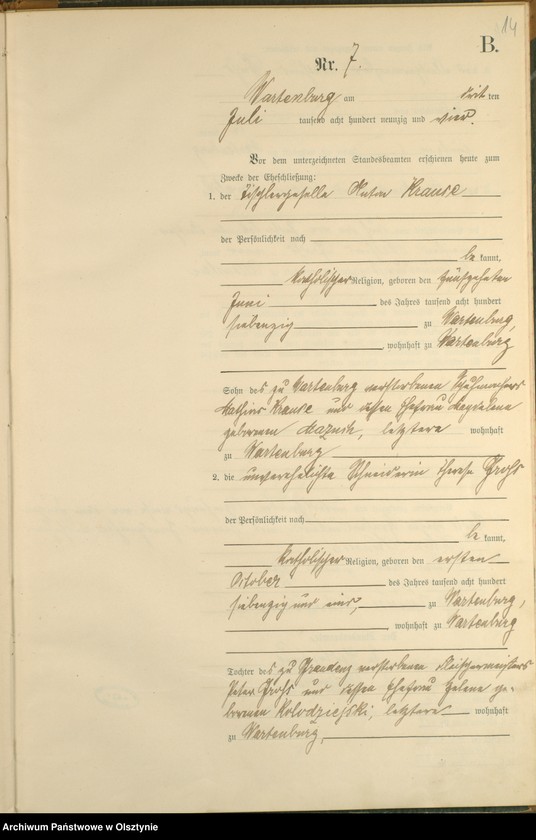 14
B.
Nr. 7.
Wartenburg am dritten
Juli tausend acht hundert neunzig und vier.
Vor dem unterzeichneten Standesbeamten erschienen heute zum
Zwecke der Eheschließung:
1. der Tischlergeselle Anton Krause
der Persönlichkeit nach
be kannt,
katholischer Religion, geboren den fünfzehnten
Juni des Jahres tausend acht hundert
siebenzig zu Wartenburg,
, wohnhaft zu Wartenburg
Sohn des zu Wartenburg verstorbenen
Mathias Krause und dessen Ehefrau Magdalena
geborenen letztere wohnhaft
zu Wartenburg
2. die unverehelichte Schneiderin Therese Grohs
der Persönlichkeit nach
be kannt,
katholischer Religion, geboren den ersten
October des Jahres tausend acht hundert
siebenzig und eins, zu Wartenburg,
, wohnhaft zu Wartenburg
Tochter des zu Graudenz verstorbenen Fleischermeisters
Peter Grohs und dessen Ehefrau Helene ge-
borenen Kolodziejski, letztere wohnhaft
zu Wartenburg,
Archiwum Państwowe w Olsztynie